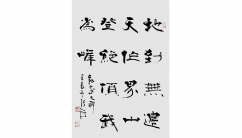 地到無邊
天作界山
登絕頂我
為峰